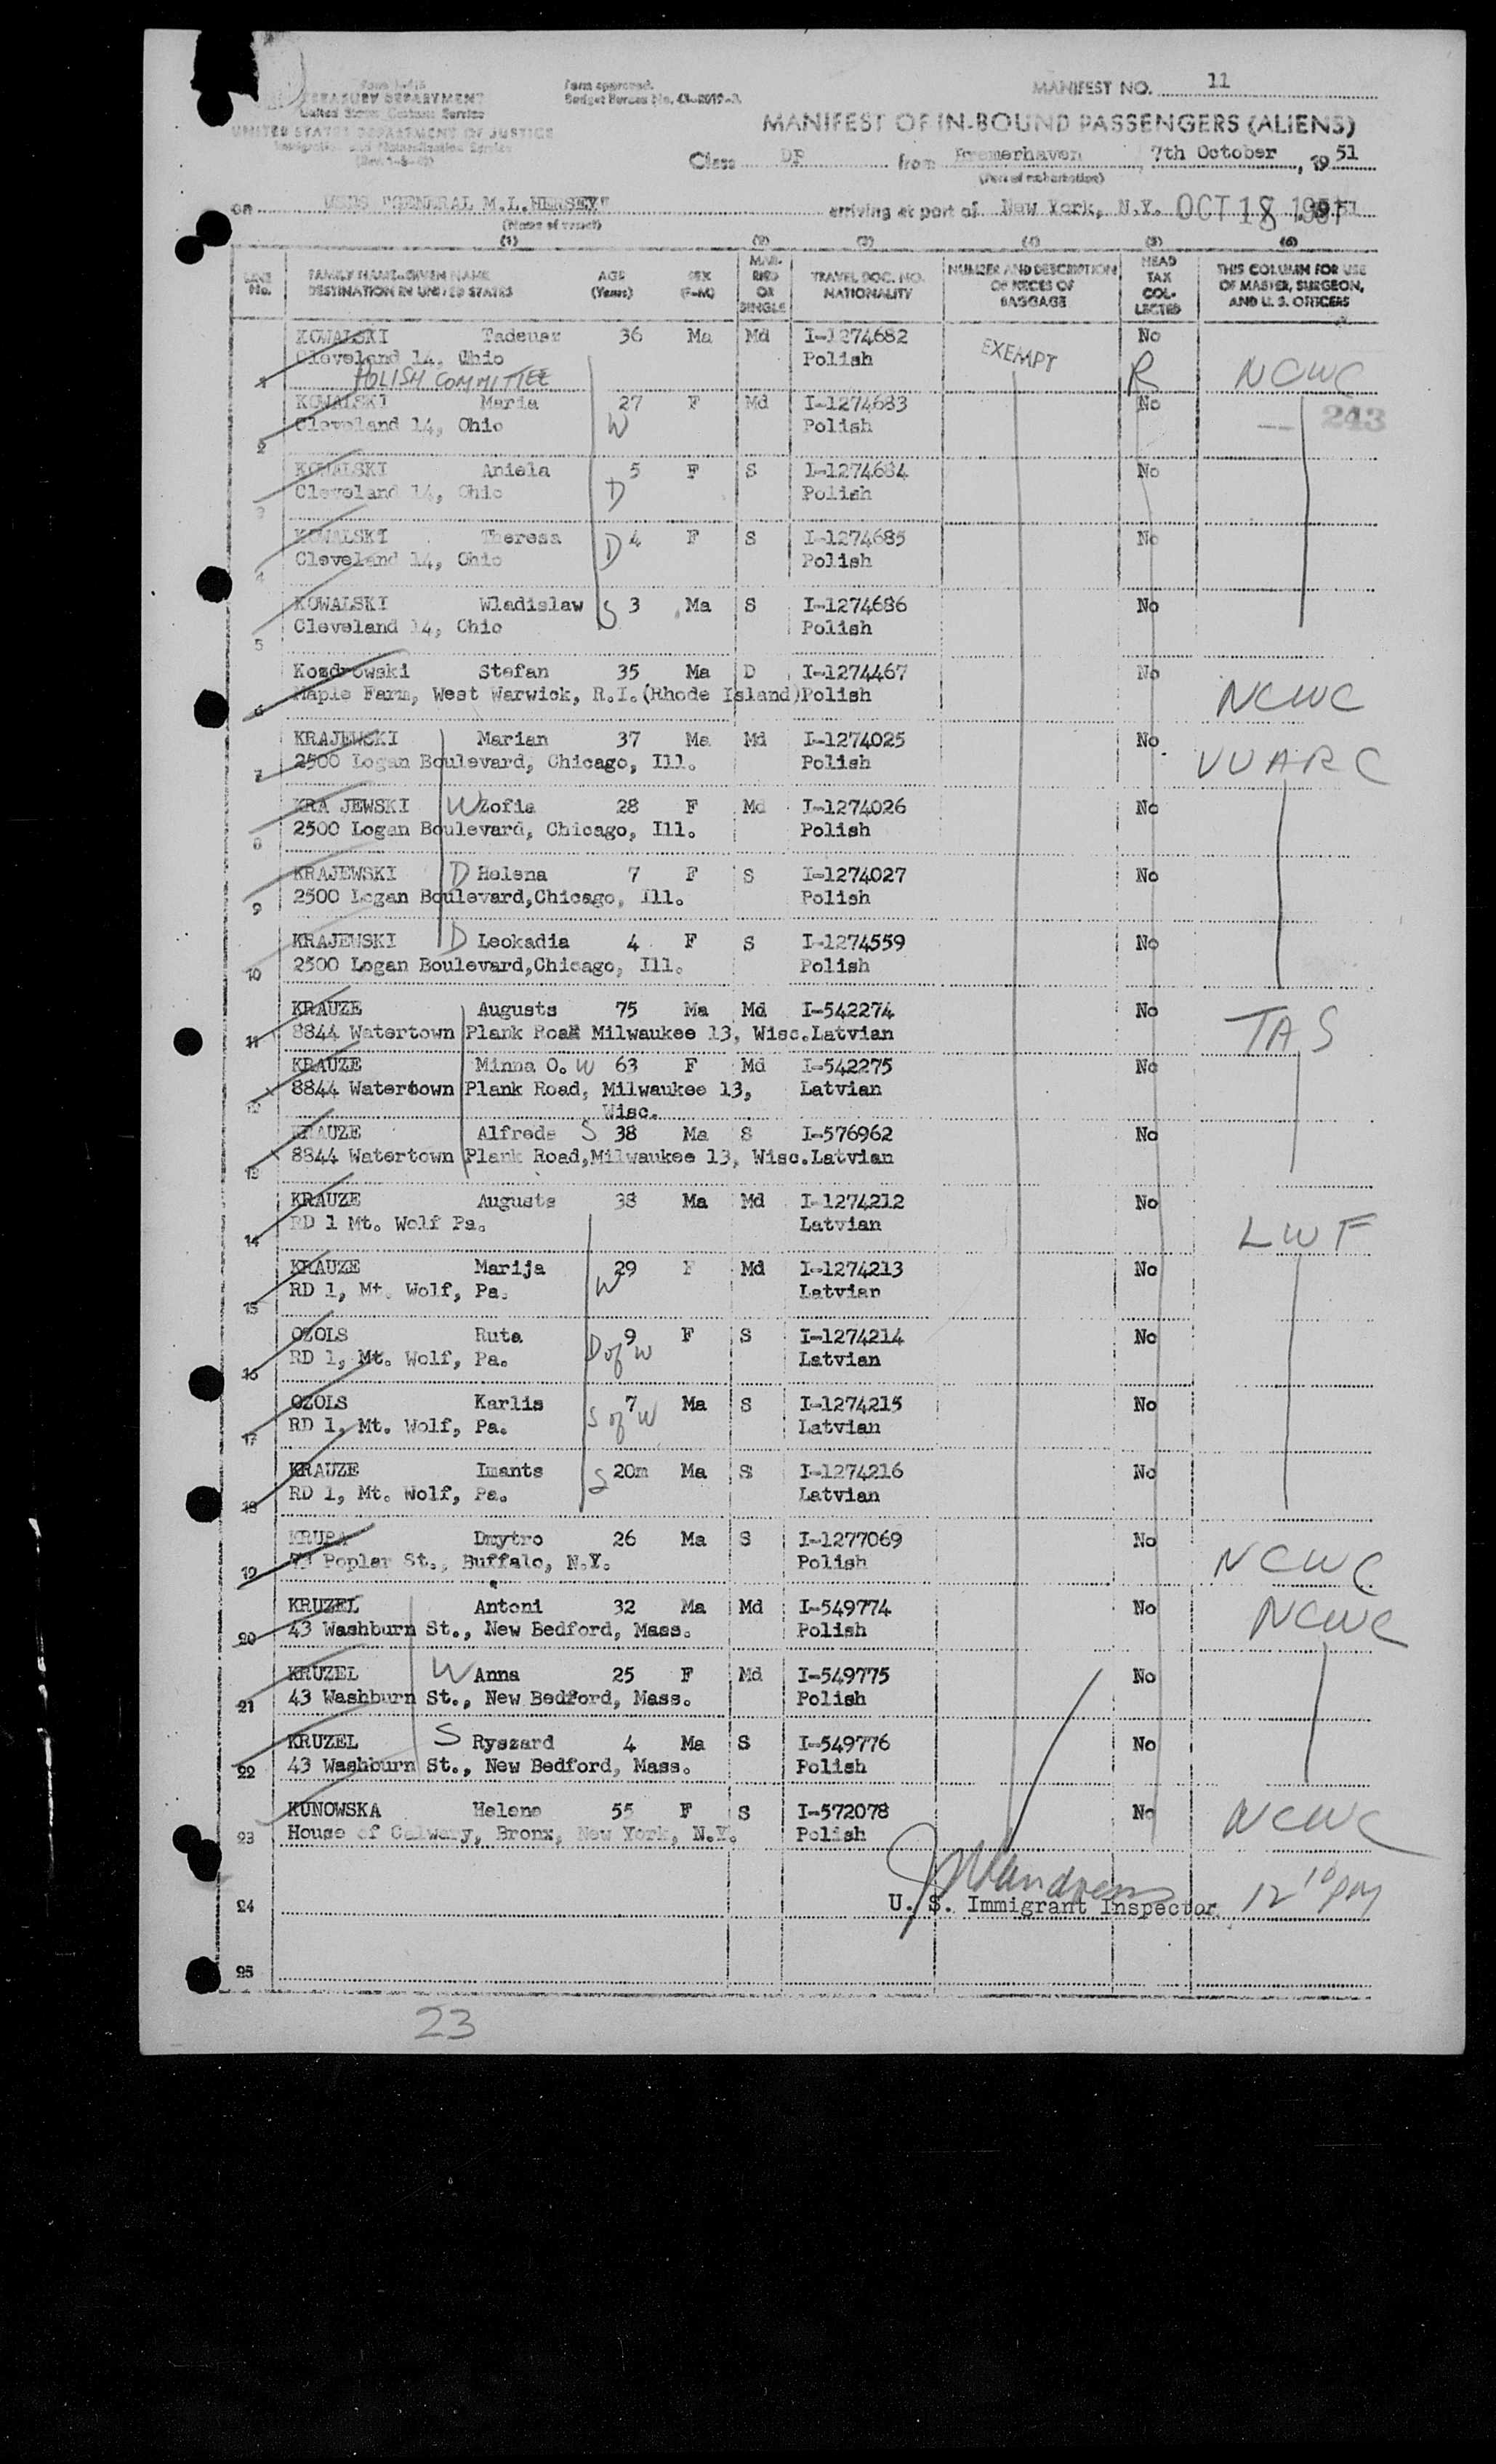 Form I-415
TREASURY DEPARTMENT
United States Customs Service
UNITED STATES DEPARTMENT OF JUSTICE
Immigration and Naturalization Service
Form approved.
Budget Bureau No. 43-R019-3.
MANIFEST NO. 11
MANIFEST OF IN-BOUND PASSENGERS (ALIENS)
Class DP from Bremerhaven, 7th October, 1951
(Port of embarkation)
on USNS "GENERAL M.L.HERSEY" arriving at port of New York, N.Y. OCT 18 1951
(Name of vessel)
(1) (2) (3) (4) (5) (6)
LINE No. FAMILY NAME-GIVEN NAME DESTINATION IN UNITED STATES AGE (Years) SEX (F-M) MARRIED OR SINGLE TRAVEL DOC. NO. NATIONALITY NUMBER AND DESCRIPTION OF PIECES OF BAGGAGE HEAD TAX COLLECTED THIS COLUMN FOR USE OF MASTER, SURGEON, AND U. S. OFFICERS
KOWALSKI Tadeusz 36 Ma Md I-1274682 No
Cleveland 14, Ohio Polish EXEMPT
1 POLISH COMMITTEE R NCWC
KOWALSKI Maria 27 F Md I-1274683 No
2 Cleveland 14, Ohio W Polish 243
KOWALSKI Aniela 5 F S I-1274684 No
3 Cleveland 14, Ohio D Polish
KOWALSKI Theresa D 4 F S I-1274685 No
4 Cleveland 14, Ohio Polish
KOWALSKI Wladislaw S 3 Ma S I-1274686 No
5 Cleveland 14, Ohio Polish
Kozdrowski Stefan 35 Ma D I-1274467 No
6 Maple Farm, West Warwick, R.I.(Rhode Island)Polish NCWC
KRAJEWSKI Marian 37 Ma Md I-1274025 No
7 2500 Logan Boulevard, Chicago, Ill. Polish UUARC
KRA JEWSKI W Zofia 28 F Md I-1274026 No
8 2500 Logan Boulevard, Chicago, Ill. Polish
KRAJEWSKI D Helena 7 F S I-1274027 No
9 2500 Logan Boulevard,Chicago, Ill. Polish
KRAJEWSKI D Leokadia 4 F S I-1274559 No
10 2500 Logan Boulevard,Chicago, Ill. Polish
KRAUZE Augusts 75 Ma Md I-542274 No
11 8844 Watertown Plank Road Milwaukee 13, Wisc.Latvian TAS
KRAUZE Minna O. W 63 F Md I-542275 No
12 8844 Watertown Plank Road, Milwaukee 13, Latvian
Wisc.
KRAUZE Alfreds S 38 Ma S I-576962 No
13 8844 Watertown Plank Road,Milwaukee 13, Wisc.Latvian
KRAUZE Augusts 38 Ma Md I-1274212 No
14 RD 1 Mt. Wolf Pa. Latvian LWF
KRAUZE Marija 29 F Md I-1274213 No
15 RD 1, Mt. Wolf, Pa. W Latvian
OZOLS Ruta 9 F S I-1274214 No
16 RD 1, Mt. Wolf, Pa. D of W Latvian
OZOLS Karlis 7 Ma S I-1274215 No
17 RD 1, Mt. Wolf, Pa. S of W Latvian
KRAUZE Imants S 20m Ma S I-1274216 No
18 RD 1, Mt. Wolf, Pa. Latvian
KRUPA Dmytro 26 Ma S I-1277069 No
19 Poplar St., Buffalo, N.Y. Polish NCWC
KRUZEL Antoni 32 Ma Md I-549774 No
20 43 Washburn St., New Bedford, Mass. Polish NCWC
KRUZEL W Anna 25 F Md I-549775 No
21 43 Washburn St., New Bedford, Mass. Polish
KRUZEL S Ryszard 4 Ma S I-549776 No
22 43 Washburn St., New Bedford, Mass. Polish
KUNOWSKA Helena 55 F S I-572078 No
23 House of Calwary, Bronx, New York, N.Y. Polish NCWC
24 U. S. Immigrant Inspector 12 10 pm
25
23